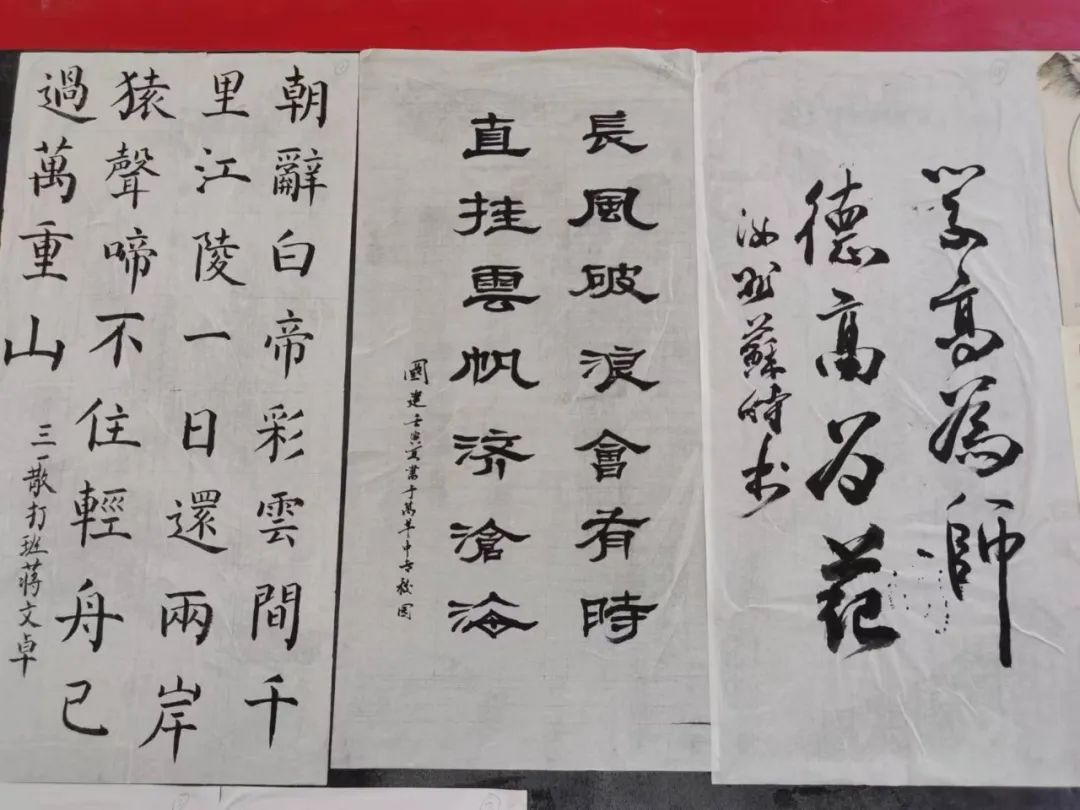 朝辭白帝彩雲間千
里江陵一日還兩岸
猿聲啼不住輕舟已
過萬重山
三一散打班蔣文卓
長風破浪會有時
直挂雲帆济滄海
國建壬寅夏書于
學高為師
德高为范
蘇時书